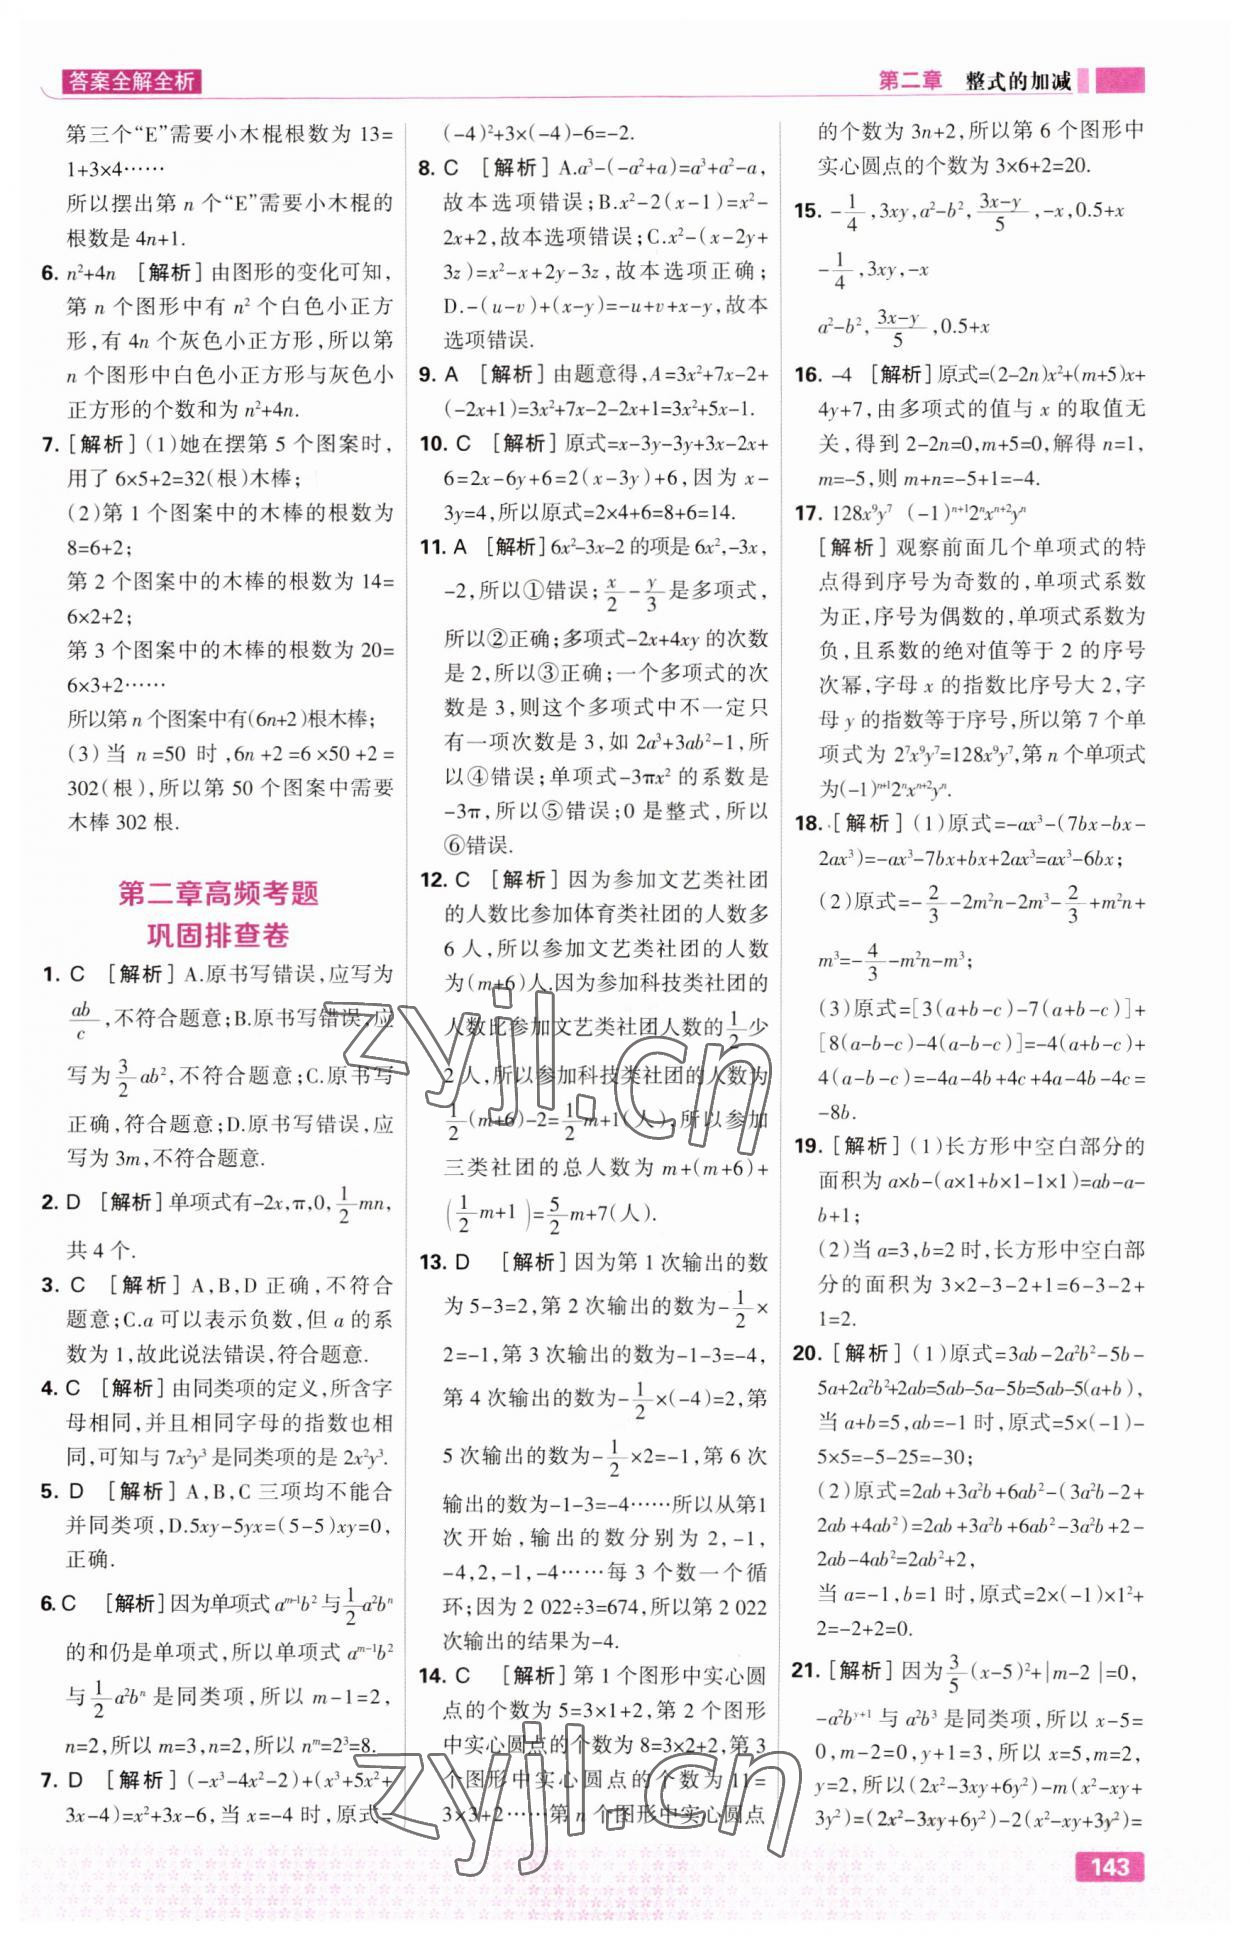 答案全解全析
第二章 整式的加减
第三个“E”需要小木棍根数为 13=
1+3×4……
所以摆出第 n 个“E”需要小木棍的
根数是 4n+1.
6. n²+4n [解析] 由图形的变化可知,
第 n 个图形中有 n² 个白色小正方
形,有 4n 个灰色小正方形,所以第
n 个图形中白色小正方形与灰色小
正方形的个数和为 n²+4n.
7. [解析] (1)她在摆第 5 个图案时,
用了 6×5+2=32(根)木棒;
(2)第 1 个图案中的木棒的根数为
8=6+2;
第 2 个图案中的木棒的根数为 14=
6×2+2;
第 3 个图案中的木棒的根数为 20=
6×3+2……
所以第 n 个图案中有(6n+2)根木棒;
(3)当 n=50 时,6n+2=6×50+2=
302(根),所以第 50 个图案中需要
木棒 302 根.
第二章高频考题
巩固排查卷
1. C [解析] A.原书写错误,应写为
ab/c,不符合题意;B.原书写错误,应
写为 3/2 ab²,不符合题意;C.原书写
正确,符合题意;D.原书写错误,应
写为 3m,不符合题意.
2. D [解析] 单项式有-2x,π,0,1/2 mn,
共 4 个.
3. C [解析] A,B,D 正确,不符合
题意;C.a 可以表示负数,但 a 的系
数为 1,故此说法错误,符合题意.
4. C [解析] 由同类项的定义,所含字
母相同,并且相同字母的指数也相
同,可知与 7x²y³ 是同类项的是 2x²y³.
5. D [解析] A,B,C 三项均不能合
并同类项,D.5xy-5yx=(5-5)xy=0,
正确.
6. C [解析] 因为单项式 aᵐ⁻¹b² 与 1/2 a²bⁿ
的和仍是单项式,所以单项式 aᵐ⁻¹b²
与 1/2 a²bⁿ 是同类项,所以 m-1=2,
n=2,所以 m=3,n=2,所以 nᵐ=2³=8.
7. D [解析] (-x³-4x²-2)+(x³+5x²+
3x-4)=x²+3x-6,当 x=-4 时,原式=
(-4)²+3×(-4)-6=-2.
8. C [解析] A.a³-(-a²+a)=a³+a²-a,
故本选项错误;B.x²-2(x-1)=x²-
2x+2,故本选项错误;C.x²-(x-2y+
3z)=x²-x+2y-3z,故本选项正确;
D.-(u-v)+(x-y)=-u+v+x-y,故本
选项错误.
9. A [解析] 由题意得,A=3x²+7x-2+
(-2x+1)=3x²+7x-2-2x+1=3x²+5x-1.
10. C [解析] 原式=x-3y-3y+3x-2x+
6=2x-6y+6=2(x-3y)+6,因为 x-
3y=4,所以原式=2×4+6=8+6=14.
11. A [解析] 6x²-3x-2 的项是 6x²,-3x,
-2,所以①错误;x/2-y/3 是多项式,
所以②正确;多项式-2x+4xy 的次数
是 2,所以③正确;一个多项式的次
数是 3,则这个多项式中不一定只
有一项次数是 3,如 2a³+3ab²-1,所
以④错误;单项式-3πx² 的系数是
-3π,所以⑤错误;0 是整式,所以
⑥错误.
12. C [解析] 因为参加文艺类社团
的人数比参加体育类社团的人数多
6 人,所以参加文艺类社团的人数
为(m+6)人.因为参加科技类社团的
人数比参加文艺类社团人数的 1/2 少
2 人,所以参加科技类社团的人数为
1/2(m+6)-2=1/2 m+1(人),所以参加
三类社团的总人数为 m+(m+6)+
(1/2 m+1)=5/2 m+7(人).
13. D [解析] 因为第 1 次输出的数
为 5-3=2,第 2 次输出的数为-1/2×
2=-1,第 3 次输出的数为-1-3=-4,
第 4 次输出的数为-1/2×(-4)=2,第
5 次输出的数为-1/2×2=-1,第 6 次
输出的数为-1-3=-4……所以从第1
次开始,输出的数分别为 2,-1,
-4,2,-1,-4……每 3 个数一个循
环;因为 2 022÷3=674,所以第 2 022
次输出的结果为-4.
14. C [解析] 第 1 个图形中实心圆
点的个数为 5=3×1+2,第 2 个图形
中实心圆点的个数为 8=3×2+2,第 3
个图形中实心圆点的个数为 11=
3×3+2……第 n 个图形中实心圆点
的个数为 3n+2,所以第 6 个图形中
实心圆点的个数为 3×6+2=20.
15. -1/4,3xy,a²-b²,(3x-y)/5,-x,0.5+x
-1/4,3xy,-x
a²-b²,(3x-y)/5,0.5+x
16. -4 [解析] 原式=(2-2n)x²+(m+5)x+
4y+7,由多项式的值与 x 的取值无
关,得到 2-2n=0,m+5=0,解得 n=1,
m=-5,则 m+n=-5+1=-4.
17. 128x⁹y⁷ (-1)ⁿ⁺¹2ⁿxⁿ⁺²yⁿ
[解析] 观察前面几个单项式的特
点得到序号为奇数的,单项式系数
为正,序号为偶数的,单项式系数为
负,且系数的绝对值等于 2 的序号
次幂,字母 x 的指数比序号大 2,字
母 y 的指数等于序号,所以第 7 个单
项式为 2⁷x⁹y⁷=128x⁹y⁷,第 n 个单项式
为(-1)ⁿ⁺¹2ⁿxⁿ⁺²yⁿ.
18. [解析] (1)原式=-ax³-(7bx-bx-
2ax³)=-ax³-7bx+bx+2ax³=ax³-6bx;
(2)原式=-2/3-2m²n-2m³-2/3+m²n+
m³=-4/3-m²n-m³;
(3)原式=[3(a+b-c)-7(a+b-c)]+
[8(a-b-c)-4(a-b-c)]=-4(a+b-c)+
4(a-b-c)=-4a-4b+4c+4a-4b-4c=
-8b.
19. [解析] (1)长方形中空白部分的
面积为 a×b-(a×1+b×1-1×1)=ab-a-
b+1;
(2)当 a=3,b=2 时,长方形中空白部
分的面积为 3×2-3-2+1=6-3-2+
1=2.
20. [解析] (1)原式=3ab-2a²b²-5b-
5a+2a²b²+2ab=5ab-5a-5b=5ab-5(a+b),
当 a+b=5,ab=-1 时,原式=5×(-1)-
5×5=-5-25=-30;
(2)原式=2ab+3a²b+6ab²-(3a²b-2+
2ab+4ab²)=2ab+3a²b+6ab²-3a²b+2-
2ab-4ab²=2ab²+2,
当 a=-1,b=1 时,原式=2×(-1)×1²+
2=-2+2=0.
21. [解析] 因为 3/5(x-5)²+|m-2|=0,
-a²bʸ⁺¹ 与 a²b³ 是同类项,所以 x-5=
0,m-2=0,y+1=3,所以 x=5,m=2,
y=2,所以(2x²-3xy+6y²)-m(x²-xy+
3y²)=(2x²-3xy+6y²)-2(x²-xy+3y²)=
143
zyjl.cn
zyjl.cn